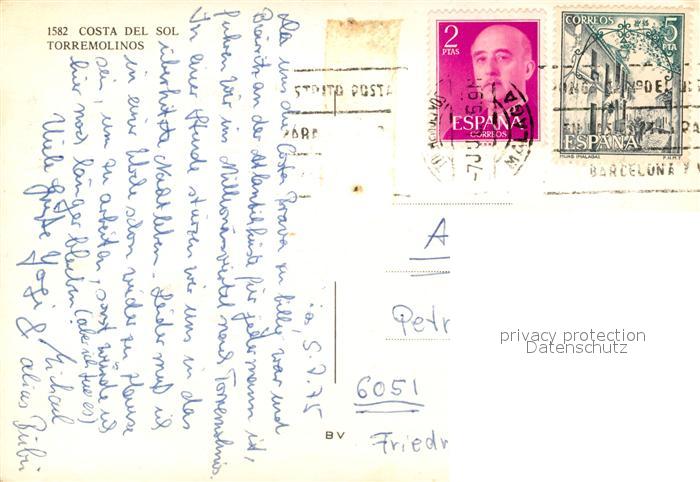 1582 COSTA DEL SOL
TORREMOLINOS
ia, 5.7.75
Da uns die Costa Brava zu billig war und
Biarritz an der Atlantikküste für jedermann ist,
fuhren wir ins Millionärsviertel nach Torremolinos.
In einer Stunde stürzen wir uns in das
überhitzte Nachtleben. Leider muß ich
in einer Woche schon wieder zu Hause
sein, um zu arbeiten, sonst würde ich
hier noch länger bleiben! (aber ich tue es)
Viele Grüße Yogi & Michael
alias Bubi
2
PTAS
ESPAÑA
CORREOS
CORREOS
5
PTA
ESPAÑA
MIJAS (MALAGA)
F.N.M.T.
DISTRITO POSTA
PARA
MALAGA
BARCELONA Y
A
Petr
6051
Friedr
BV
privacy protection
Datenschutz